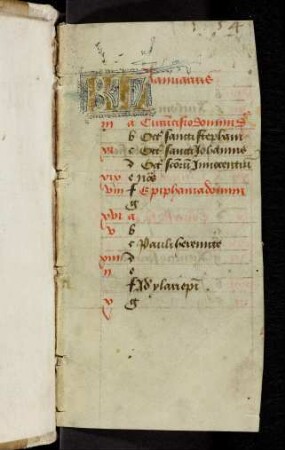 KL Januarius
iii a Circumcisio domini
b Oct sancti stephani
xi c Oct sancti Johannis
d Oct sctorum Innocentiu
xix e nos
viii f Epiphania domini
g
xvi a
v b
c Pauli heremite
xiii d
ii e
f hylarii epi
x g